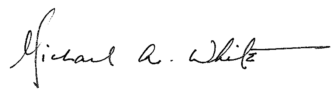 Michael A. White